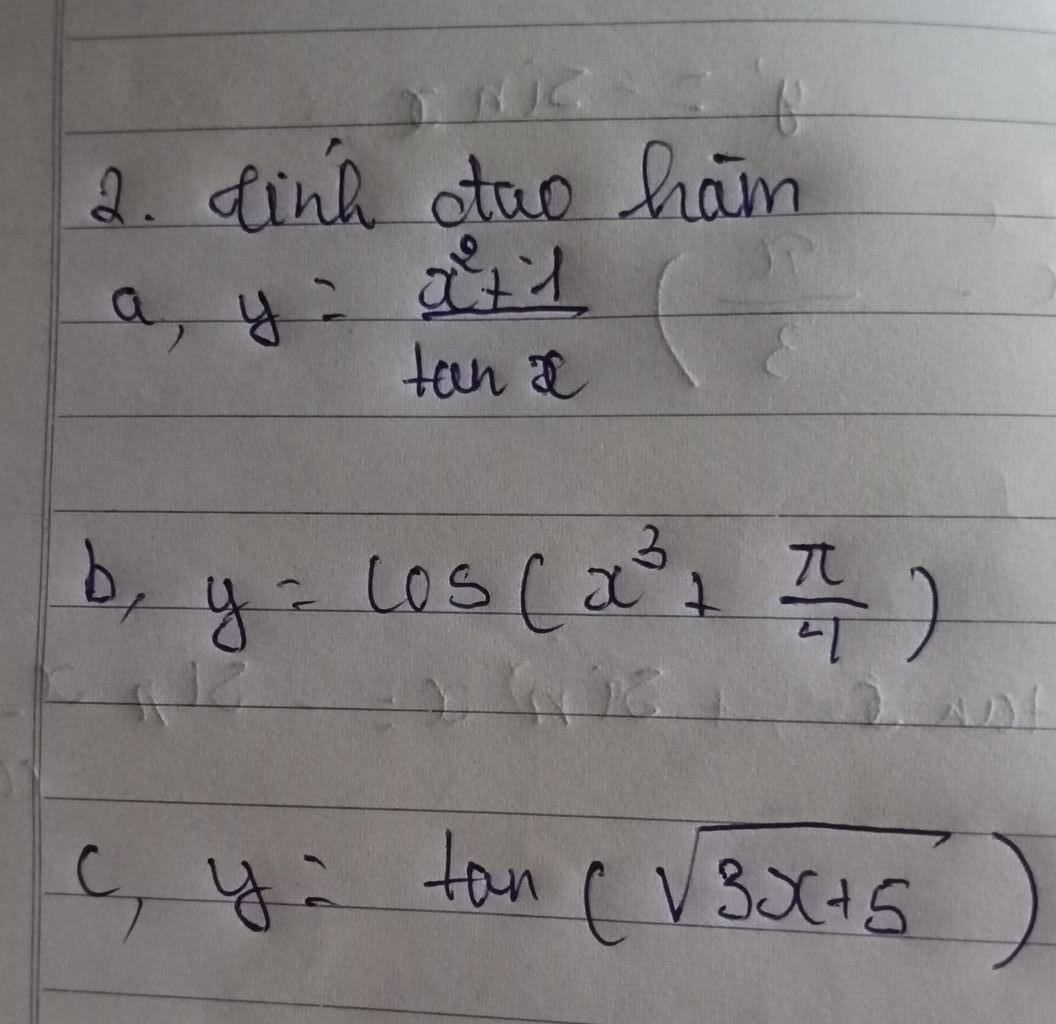 2. tính đtạo hàm
a, y = x²+1 / tan x
b, y = cos ( x³ + π/4 )
c, y = tan ( √3x+5 )